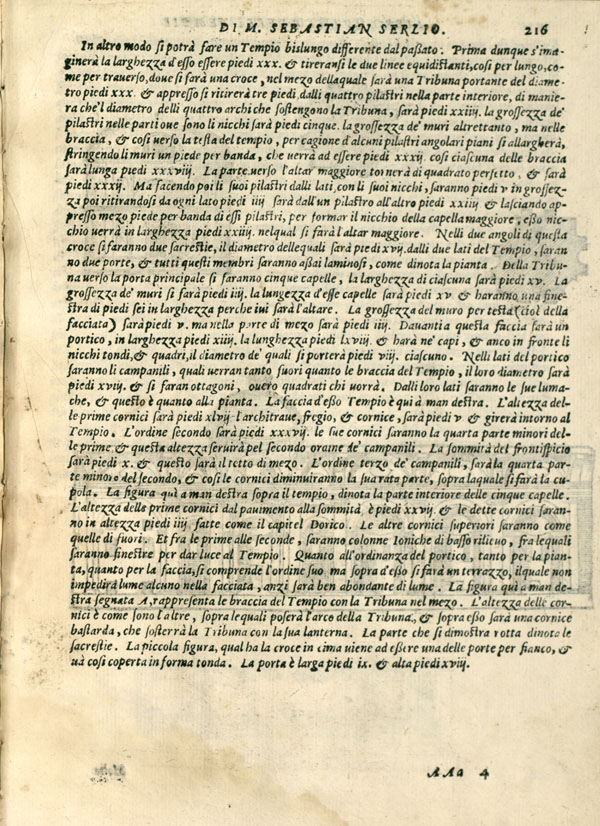 DI M. SEBASTIAN SERLIO. 216
In altro modo si potrà fare un Tempio bislungo differente dal passato. Prima dunque s'ima-
ginerà la larghezza d'esso essere piedi xxx. & tireransi le due linee equidistanti, cosi per lungo, co-
me per trauerso, doue si farà una croce, nel mezo dellaquale sarà una Tribuna portante del diame-
tro piedi xxx. & appresso si ritirerà tre piedi, dalli quattro pilastri nella parte interiore, di manie-
ra che'l diametro delli quattro archi che sostengono la Tribuna, sarà piedi xxiiij. la grossezza de'
pilastri nelle parti oue sono li nicchi sarà piedi cinque. la grossezza de' muri altrettanto, ma nelle
braccia, & cosi uerso la testa del tempio, per cagione d'alcuni pilastri angolari piani si allargherà,
stringendo li muri un piede per banda, che uerrà ad essere piedi xxxij. cosi ciascuna delle braccia
sarà lunga piedi xxxvij. La parte uerso l'altar maggiore tornerà di quadrato perfetto. & sarà
piedi xxxij. Ma facendo poi li suoi pilastri dalli lati, con li suoi nicchi, saranno piedi v in grossez-
za poi ritirandosi da ogni lato piedi iiij sarà dall'un pilastro all'altro piedi xxiiij & lasciando ap-
presso mezo piede per banda di essi pilastri, per formar il nicchio della capella maggiore, esso nic-
chio uerrà in larghezza piedi xxiij. nelqual si farà l'altar maggiore. Nelli due angoli di questa
croce si faranno due sacrestie, il diametro dellequali sarà piedi xvij. dalli due lati del Tempio, saran
no due porte, & tutti questi membri saranno assai luminosi, come dinota la pianta. Della Tribu-
na uerso la porta principale si faranno cinque capelle, la larghezza di ciascuna sarà piedi xv. La
grossezza de' muri si farà piedi iiij. la lungezza d'esse capelle sarà piedi xv & haranno una fine-
stra di piedi sei in larghezza perche iui sarà l'altare. La grossezza del muro per testa (cioè della
facciata) sarà piedi v. ma nella parte di mezo sarà piedi iiij. Dauanti a questa faccia sarà un
portico, in larghezza piedi xiiij. la lunghezza piedi lxviij & harà ne' capi, & anco in fronte li
nicchi tondi, & quadri, il diametro de' quali si porterà piedi viij. ciascuno. Nelli lati del portico
saranno li campanili, quali uerran tanto fuori quanto le braccia del Tempio, il loro diametro sarà
piedi xviij. & si faran ottagoni, ouero quadrati chi uorrà. Dalli loro lati saranno le sue luma-
che, & questo è quanto alla pianta. La faccia d'esso Tempio è quì a man destra. L'altezza del-
le prime cornici sarà piedi xlvij. l'architraue, fregio, & cornice, sarà piedi v & girerà intorno al
Tempio. L'ordine secondo sarà piedi xxxvij. le sue cornici saranno la quarta parte minori del-
le prime & questa altezza seruirà pel secondo oraine de' campanili. La sommità del frontispicio
sarà piedi x. & questo sarà il tetto di mezo. L'ordine terzo de' campanili, sarà la quarta par-
te minore del secondo, & cosi le cornici diminuiranno la sua rata parte, sopra laquale si farà la cu-
pola. La figura quì a man destra sopra il tempio, dinota la parte interiore delle cinque capelle.
L'altezza delle prime cornici dal pauimento alla sommità è piedi xxvij. & le dette cornici saran-
no in altezza piedi iiij fatte come il capitel Dorico. Le altre cornici superiori saranno come
quelle di fuori. Et fra le prime alle seconde, saranno colonne Ioniche di basso rilieuo, fra lequali
saranno finestre per dar luce al Tempio. Quanto all'ordinanza del portico, tanto per la pian-
ta, quanto per la faccia, si comprende l'ordine suo ma sopra d'esso si farà un terrazzo, il quale non
impedirà lume alcuno nella facciata, anzi sarà ben abondante di lume. La figura quì a man de-
stra segnata A, rappresenta le braccia del Tempio con la Tribuna nel mezo. L'altezza delle cor-
nici è come sono l'altre, sopra lequali poserà l'arco della Tribuna, & sopra esso sarà una cornice
bastarda, che sosterrà la Tribuna con la sua lanterna. La parte che si dimostra rotta dinota le
sacrestie. La piccola figura, qual ha la croce in cima uiene ad essere una delle porte per fianco, &
uà cosi coperta in forma tonda. La porta è larga piedi ix. & alta piedi xviij.
AAa 4